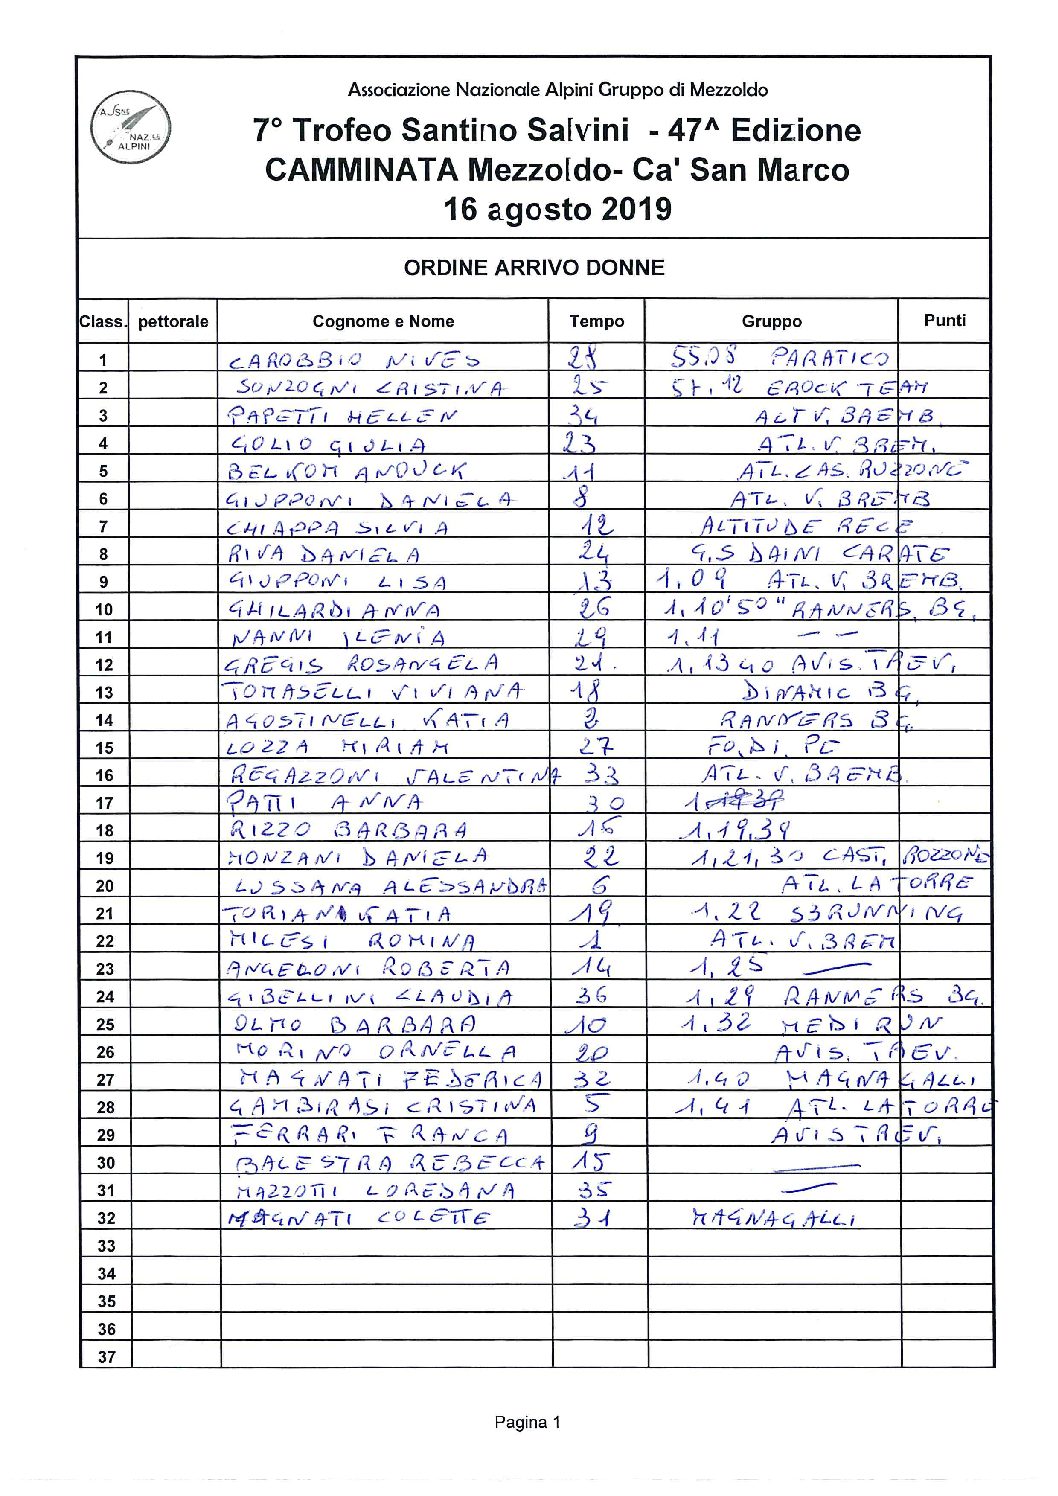 Associazione Nazionale Alpini Gruppo di Mezzoldo
7° Trofeo Santino Salvini - 47^ Edizione
CAMMINATA Mezzoldo- Ca' San Marco
16 agosto 2019
ASS.NE NAZ.LE ALPINI
ORDINE ARRIVO DONNE
Class. pettorale Cognome e Nome Tempo Gruppo Punti
1 CAROBBIO NIVES 28 55.08 PARATICO
2 SONZOGNI CRISTINA 25 57.12 EROCK TEAM
3 PAPETTI HELLEN 34 ALT V. BREMB
4 GOLIO GIULIA 23 ATL. V. BREM.
5 BELKOM ANOUCK 11 ATL. CAS. ROZZONE
6 GIUPPONI DANIELA 8 ATL. V. BREMB
7 CHIAPPA SILVIA 12 ALTITUDE RECE
8 RIVA DANIELA 24 G.S DAINI CARATE
9 GIUPPONI LISA 13 1,09 ATL. V. BREMB.
10 GHILARDI ANNA 26 1,10'50" RANNERS, BG,
11 NANNI ILENIA 29 1.11 — —
12 GREGIS ROSANGELA 21. 1,13 40 AVIS. TREV,
13 TOMASELLI VIVIANA 18 DINAMIC BG,
14 AGOSTINELLI KATIA 2 RANNERS BG.
15 LOZZA MIRIAM 27 FO.DI. PE
16 REGAZZONI VALENTINA 33 ATL. V. BREMB.
17 PATTI ANNA 30
18 RIZZO BARBARA 16 1,19,39
19 MONZANI DANIELA 22 1,21,30 CAST, ROZZONE
20 LUSSANA ALESSANDRA 6 ATL. LA TORRE
21 TORIANI KATIA 19 1.22 S3RUNNING
22 MILESI ROMINA 1 ATL. V. BREM
23 ANGELONI ROBERTA 14 1,25 —
24 GIBELLINI CLAUDIA 36 1,29 RANMERS BG.
25 OLMO BARBARA 10 1,32 MEDIRUN
26 MORINO ORNELLA 20 AVIS. TREV.
27 MAGNATI FEDERICA 32 1.40 MAGNAGALLI
28 GAMBIRASI CRISTINA 5 1,41 ATL. LA TORRE
29 FERRARI FRANCA 9 AVIS TREV,
30 BALESTRA REBECCA 15 —
31 MAZZOTTI LOREDANA 35 —
32 MAGNATI COLETTE 31 MAGNAGALLI
33
34
35
36
37
Pagina 1